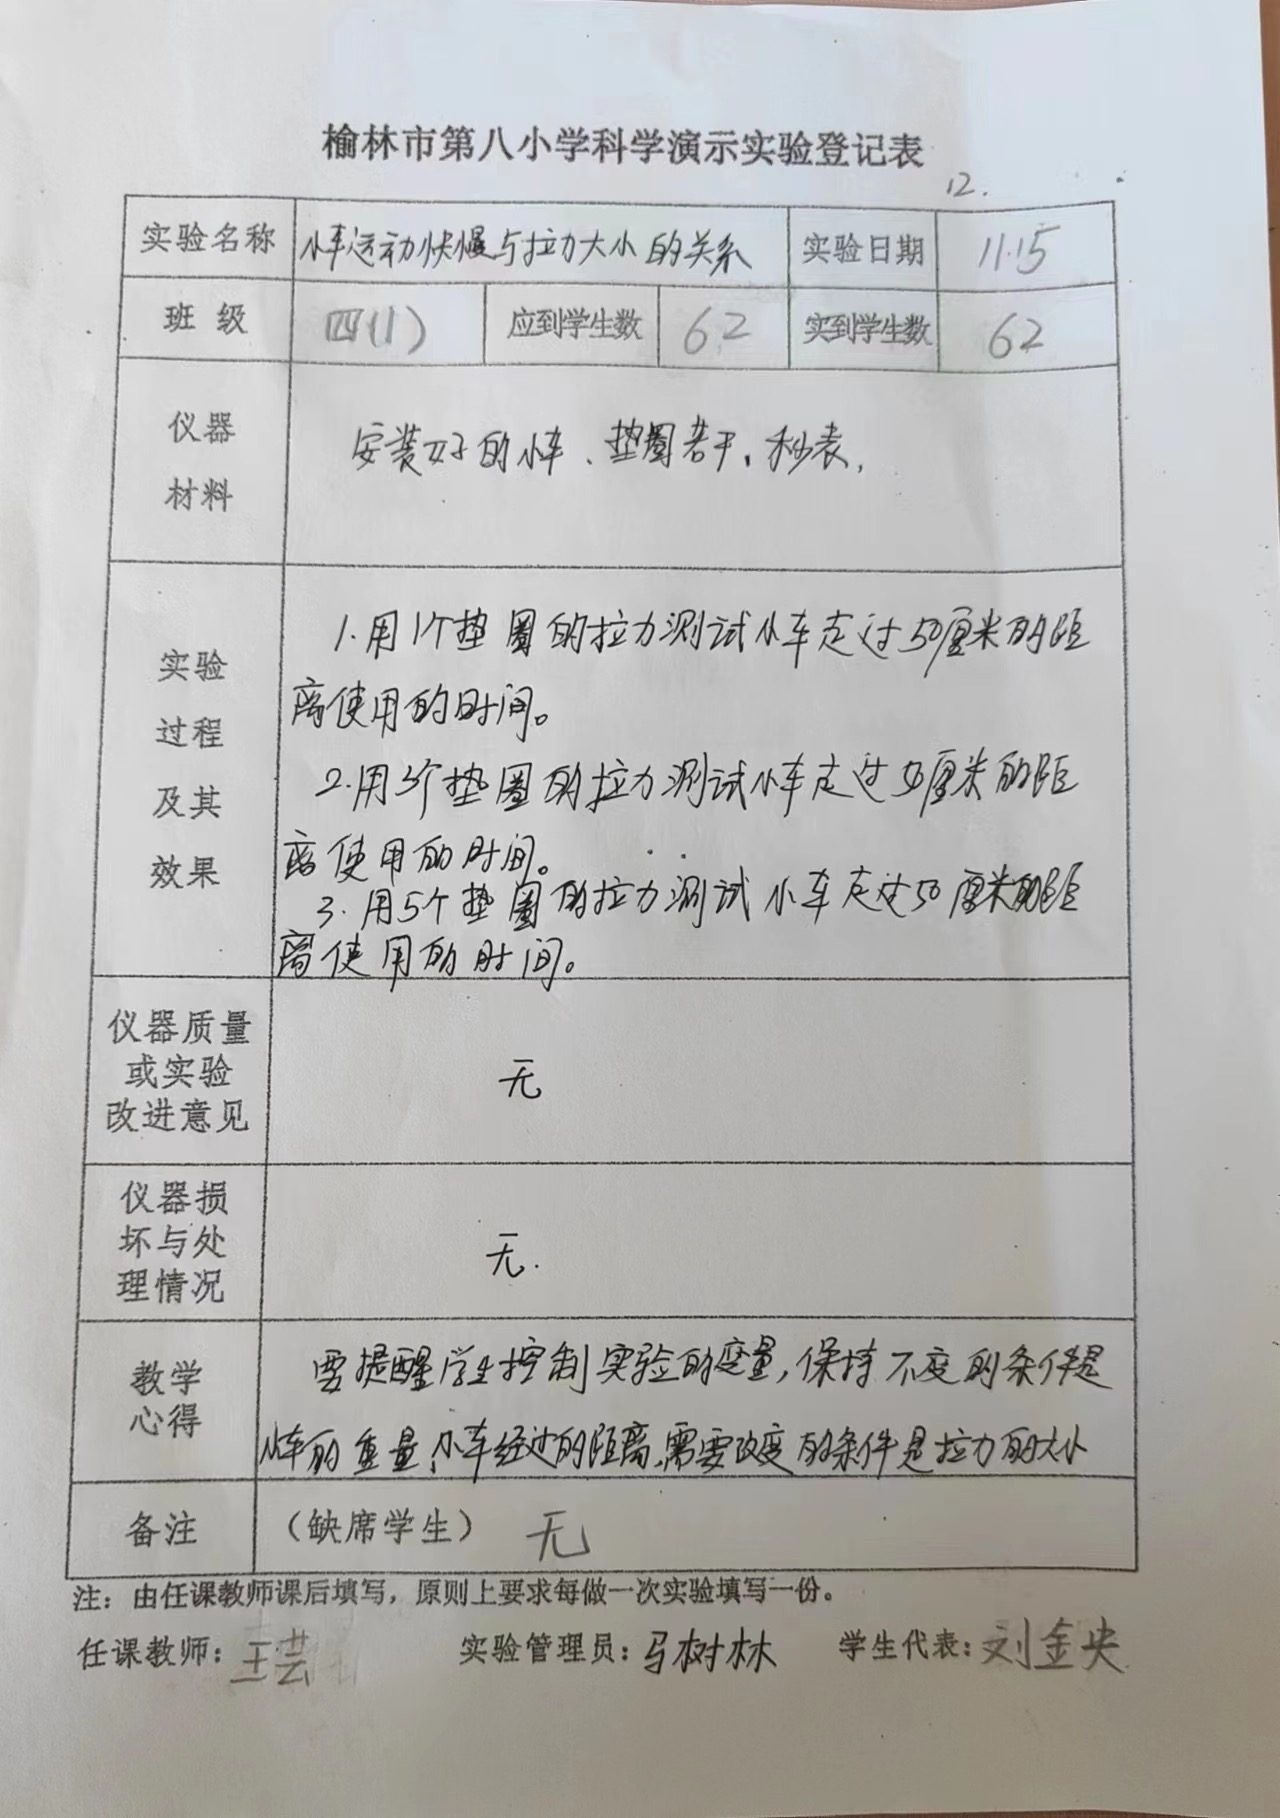 榆林市第八小学科学演示实验登记表
12.
实验名称 小车运动快慢与拉力大小的关系 实验日期 11.15
班 级 四(1) 应到学生数 62 实到学生数 62
仪器
材料
安装好的小车、垫圈若干、秒表,
实验
过程
及其
效果
1.用1个垫圈的拉力测试小车走过50厘米的距
离使用的时间。
2.用3个垫圈的拉力测试小车走过50厘米的距
离使用的时间。
3.用5个垫圈的拉力测试小车走过50厘米的距
离使用的时间。
仪器质量
或实验
改进意见
无
仪器损
坏与处
理情况
无.
教学
心得
要提醒学生控制实验的变量,保持不变的条件是
小车的重量、小车经过的距离,需要改变的条件是拉力的大小
备注 (缺席学生) 无
注：由任课教师课后填写，原则上要求每做一次实验填写一份。
任课教师：王芸 实验管理员：马树林 学生代表：刘金央